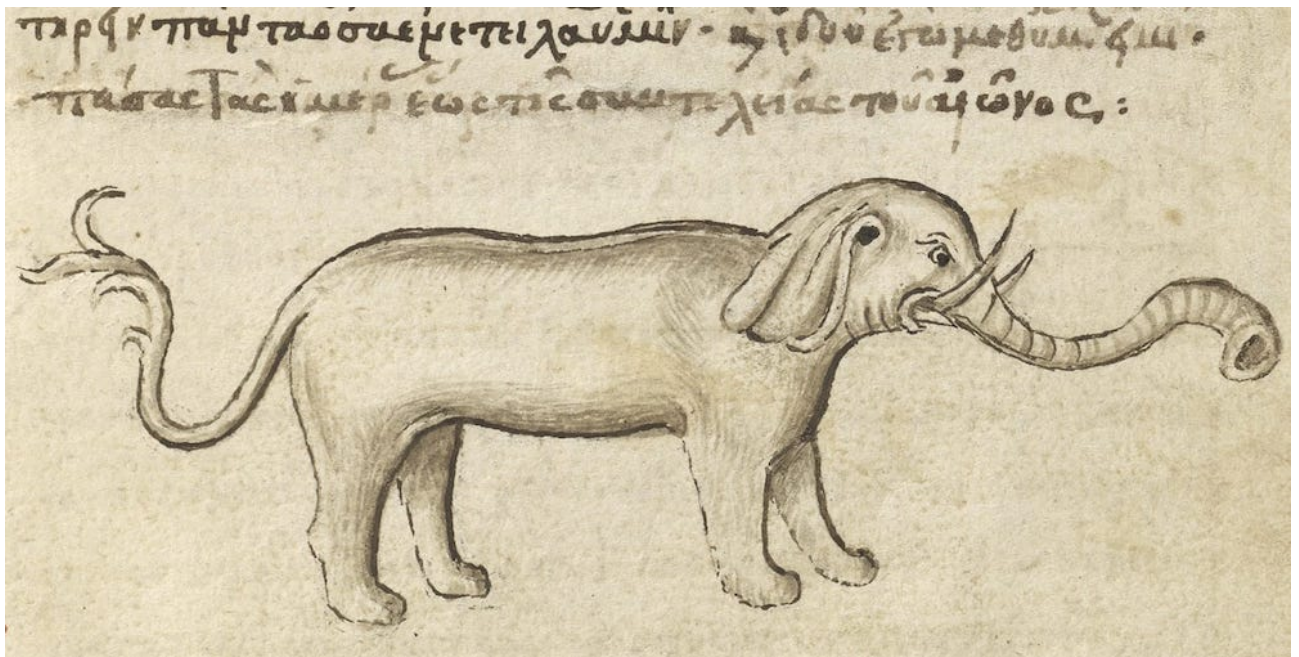 τηρεῖν πάντα ὅσα ἐνετειλάμην ὑμῖν · ἰδοὺ ἐγὼ μεθ υμ εἰμι ·
πάσας τὰς ἡμέρ ἕως τῆς συντελείας τοῦ αἰῶνος :